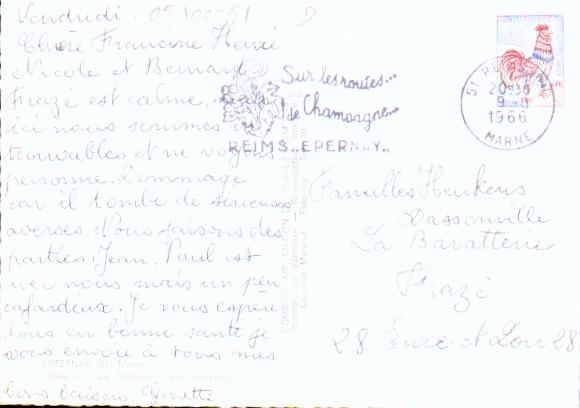 Vendredi. 05100051
Chère Francine Hervé
Nicole et Bernard
Fraze est calme,
ici nous sommes in
trouvables et ne voyons
personne. Dommage
car il tombe de serieuses
averses. Nous faisons des
parties. Jean. Paul est
avec nous mais un peu
cafardeux. Je vous espère
tous en bonne santé je
vous envoie à tous mes
bons baisers Ginette
Sur les routes...
de Champagne...
REIMS.. EPERNAY..
51 REIMS
20H30
9-8
1966
MARNE
Familles Heukens
Dassonville
La Baratterie
Frazé
28 Eure et Loir 28
COMBIER IMP. MACON
ESTERNAY (51. Marne)
Le Château